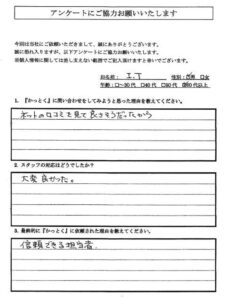 アンケートにご協力お願いいたします
今回は当社にご依頼いただきまして、誠にありがとうございます。
誠に恐れ入りますが、以下アンケートにご協力お願いいたします。
※個人情報に関しては差し支えない範囲でご記入頂けますと幸いでございます。
お名前： I.T 性別：☑男 □女
年齢：□～30代 □40代 □50代 ☑60代以上
1. 『かっとく』に問い合わせをしてみようと思った理由を教えてください。
ネットの口コミを見て良さそうだったから
2. スタッフの対応はどうでしたか？
大変良かった。
3. 最終的に『かっとく』に依頼された理由を教えてください。
信頼できる担当者